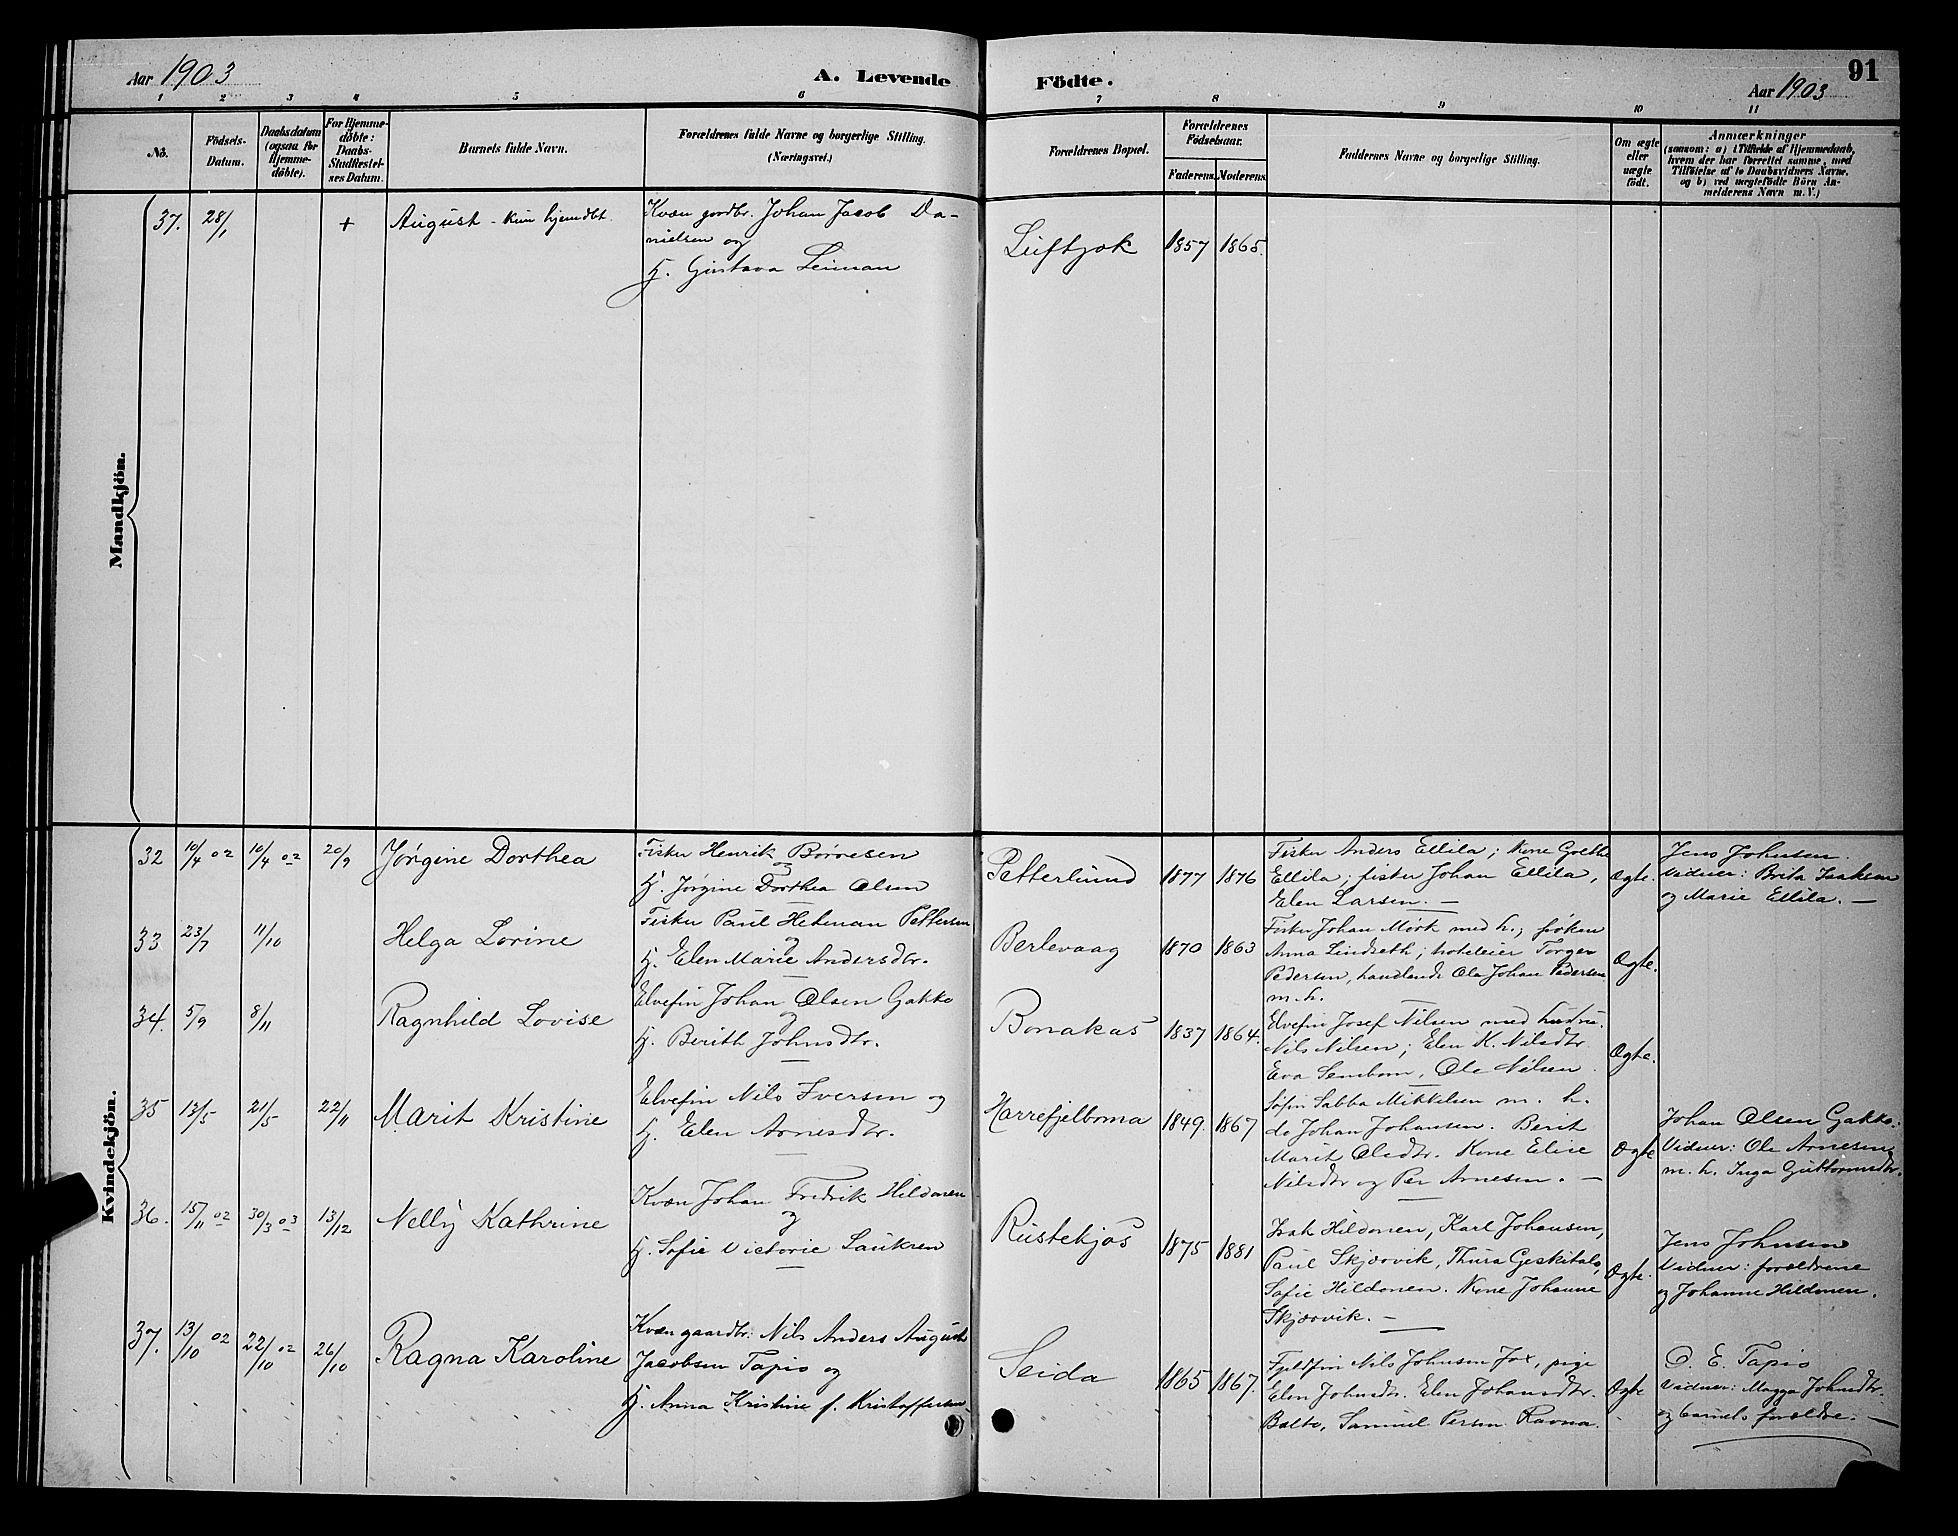 Aar 1903
A. Levende
Födte.
91
Aar 1903
1 2 3 4 5 6 7 8 9 10 11
No.
Födsels-
Datum.
Daabsdatum
(ogsaa for
Hjemme-
döbte).
For Hjemme-
döbte:
Daabs-
Stadfæstel-
ses Datum.
Barnets fulde Navn.
Forældrenes fulde Navne og borgerlige Stilling.
(Næringsvei.)
Forældrenes Bopæl.
Forældrenes
Födselsaar.
Faderens. Moderens.
Faddernes Navne og borgerlige Stilling.
Om ægte
eller
uægte
födt.
Anmærkninger
(saasom: a) i Tilfælde af Hjemmedaab,
hvem der har forrettet samme, med
Tilföielse af to Daabsvidners Navne,
og b) ved uægtefödte Börn An-
melderens Navn m. V.)
Mandkjön.
37. 28/1 + August - kun hjemdbt.
Kvæn gordbr. Johan Jacob Da-
nielsen og
H. Gustava Leiman
Luftjok 1857 1865.
Kvindekjön.
32 10/4 02 10/4 02 20/9 Jørgine Dorthea
Fisker Henrik Børresen
og
H. Jørgine Dorthea Olsen
Petterlund 1877 1876
Fisker Anders Ellila; Kone Grethe
Ellila; fisker Johan Ellila,
Elen Larsen. —
Ægte.
Jens Johnsen.
Vidner: Brita Isaksen
og Marie Ellila. —
33 23/7 11/10 Helga Lorine
Fisker Paul Heteman Pettersen
og
H. Elen Marie Andersdtr.
Berlevaag 1870 1863
Fisker Johan Mørk med h.; frøken
Anna Lindseth; hoteleier Torger
Pedersen, handlende Ole Johan Pedersen
m. h.
Ægte.
34. 5/9 8/11 Ragnhild Lovise
Elvefin Johan Olsen Gakko
og
H. Berith Johnsdtr.
Bonakas 1837 1864.
Elvefin Josef Nilsen med hustru.
Nils Nilsen; Elen K. Nilsdtr.
Eva Semborn, Ole Nilsen
Ægte.
35 12/5 21/5 22/11 Marit Kristine
Elvefin Nils Iversen og
H. Elen Arnesdtr.
Harrefjelboma 1849. 1867
Søfin Sabba Mikkelsen m. h.
do Johan Johansen. Berit
Marit Olsdtr. Kone Elise
Nilsdtr og Per Arnesen. —
Ægte
Johan Olsen Gakko.
Vidner: Ole Arnesen
m. h. Inga Guttormsdtr.
36. 15/11 02 30/3 03 13/12 Nelly Kathrine
Kvæn Johan Fredrik Hildonen
og
H. Sofie Victorie Lauksen
Rustekjos 1875 1881
Isak Hildonen, Karl Johansen,
Paul Skjærvik, Thura Geskitalo,
Sofie Hildonen. Kone Johanne
Skjærvik. —
Ægte.
Jens Johnsen
Vidner: forældrene
og Johanne Hildonen.
37. 13/10 02 22/10 02 26/10 Ragna Karoline
Kvæn gaardbr: Nils Anders August
Jacobsen Tapio og
H. Anna Kristine f. Kristoffersen
Seida 1865 1867.
Fjeldfin Nils Johnsen Jox, pige
Elen Johnsdtr. Elen Johansdtr.
Balto, Samuel Persen Ravna.
Ægte
O. E. Tapio
Vidner: Magga Johnsdtr.
og barnets forældre. —